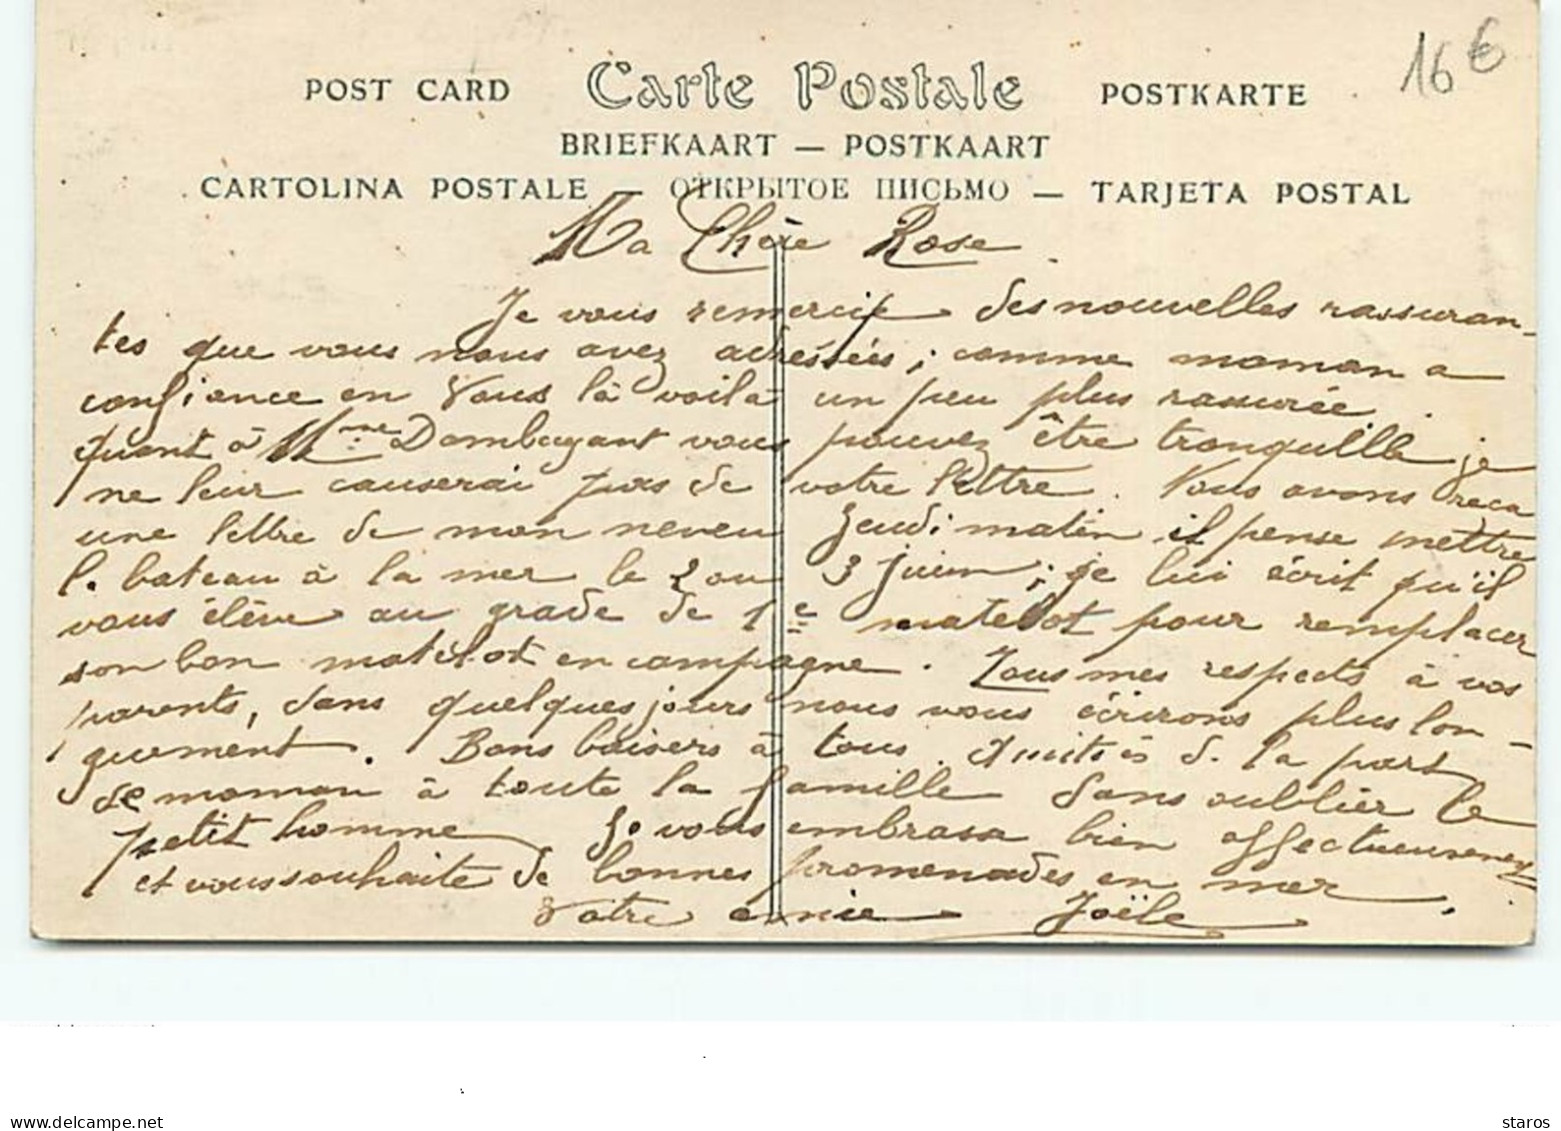 16 €
POST CARD Carte Postale POSTKARTE
BRIEFKAART — POSTKAART
CARTOLINA POSTALE — ОТКРЫТОЕ ПИСЬМО — TARJETA POSTAL
Ma Chère Rose
Je vous remercie des nouvelles rassuran-
tes que vous nous avez adressées ; comme maman a
confiance en vous là voilà un peu plus rassurée.
Quant à Mme vous pouvez être tranquille je
ne leur causerai pas de votre lettre. Nous avons reçu
une lettre de mon neveu Jeudi matin il pense mettre
le bateau à la mer le 2 ou 3 Juin ; je lui écrit qu'il
vous élève au grade de 1e matelot pour remplacer
son bon matelot en campagne. Tous mes respects à vos
parents, dans quelques jours nous vous écrirons plus lon-
guement. Bons baisers à tous. Amitiés de la part
de maman à toute la famille sans oublier le
petit homme Je vous embrasse bien affectueusement
et vous souhaite de bonnes promenades en mer.
Votre amie Joële
delcampe.net
staros